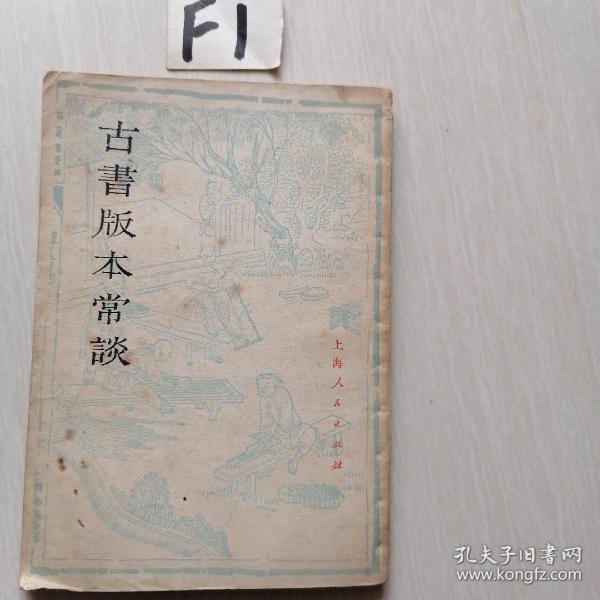 F1
古書版本常談
上海人民出版社
孔夫子旧书网
www.kongfz.com